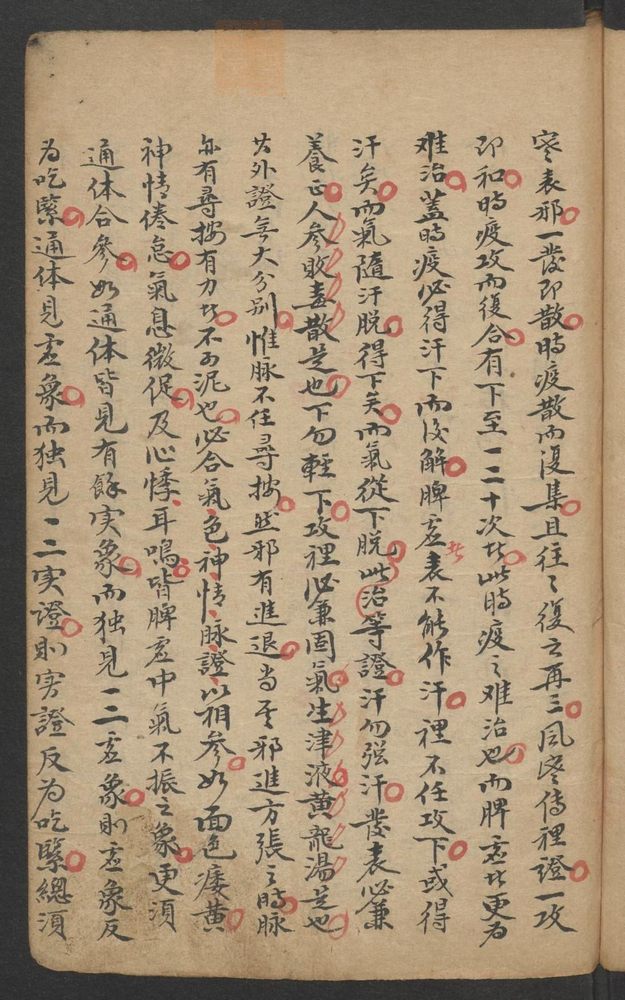 寒表邪一發即散時疫散而復集且往々復之再三風寒傳裡證一攻
即和時疫攻而復合有下至一二十次者此時疫之难治也而脾虛者更为
难治蓋時疫必得汗下而後解脾虛者表不能作汗裡不任攻下或得
汗矣而氣隨汗脱得下矣而氣從下脱此治等證汗勿强汗發表必兼
養正人參敗毒散是也下勿輕下攻裡必兼固氣生津液黃龍湯是也
其外證無大分别惟脉不任尋按然邪有進退当其邪進方張之時脉
亦有尋按有力者不可泥也必合氣色神情脉證以相參如面色痿黃
神情倦怠氣息微促及心悸耳鳴皆脾虛中氣不振之象更須
通体合參如通体皆見有餘实象而独見一二虛象則虛象反
为吃緊通体見虛象而独見一二实證則实證反为吃緊總須